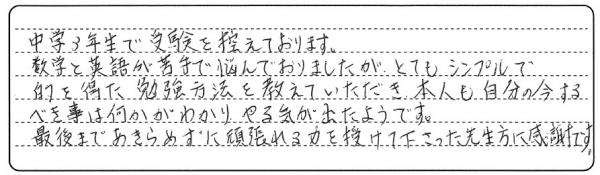 中学3年生で受験を控えております。
数学と英語が苦手で悩んでおりましたが、とてもシンプルで
的を得た勉強方法を教えていただき、本人も自分の今する
べき事は何かがわかり、やる気が出たようです。
最後まであきらめずに頑張れる力を授けて下さった先生方に感謝です。